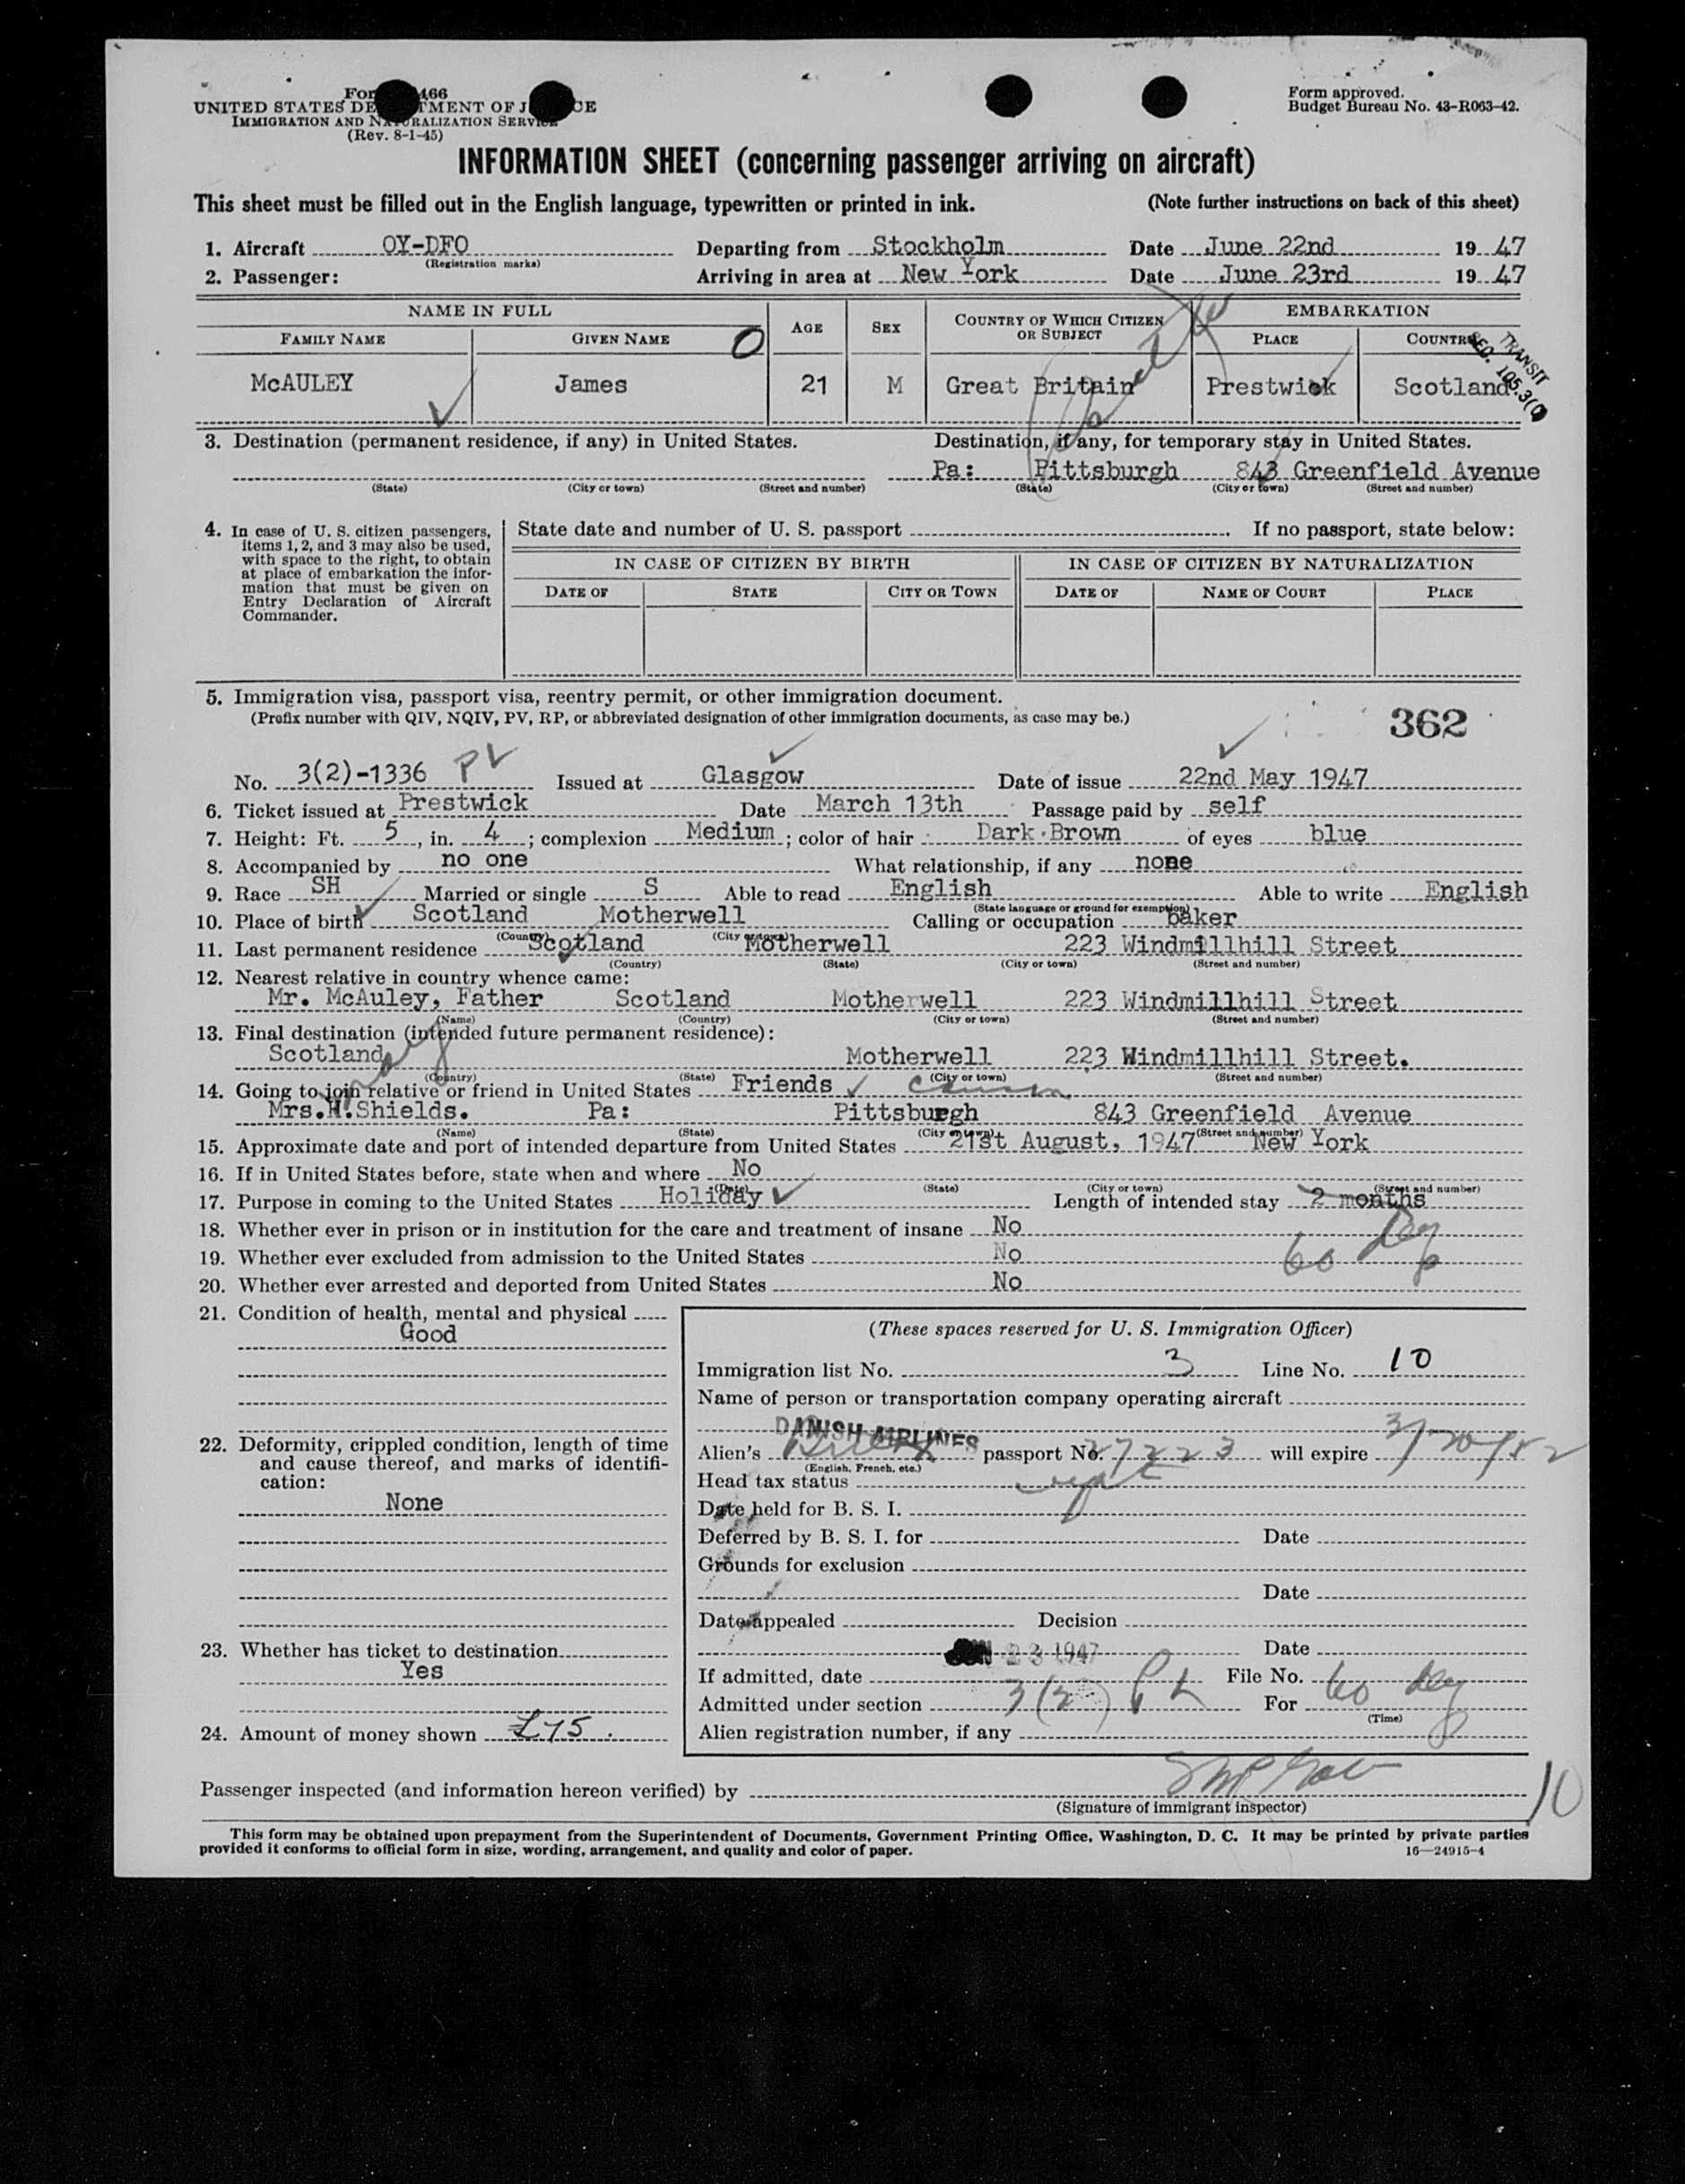 For 466
UNITED STATES DE TMENT OF J CE
IMMIGRATION AND NATURALIZATION SERVICE
(Rev. 8-1-45)
Form approved.
Budget Bureau No. 43-R063-42.
INFORMATION SHEET (concerning passenger arriving on aircraft)
This sheet must be filled out in the English language, typewritten or printed in ink. (Note further instructions on back of this sheet)
1. Aircraft OY-DFO Departing from Stockholm Date June 22nd 19 47
(Registration marks)
2. Passenger: Arriving in area at New York Date June 23rd 19 47
NAME IN FULL AGE SEX COUNTRY OF WHICH CITIZEN OR SUBJECT EMBARKATION
FAMILY NAME GIVEN NAME O PLACE COUNTRY
TRANSIT
SEC. 105.3(
McAULEY James 21 M Great Britain Prestwick Scotland
3. Destination (permanent residence, if any) in United States. Destination, if any, for temporary stay in United States.
Pa: Pittsburgh 843 Greenfield Avenue
(State) (City or town) (Street and number) (State) (City or town) (Street and number)
4. In case of U. S. citizen passengers, items 1, 2, and 3 may also be used, with space to the right, to obtain at place of embarkation the information that must be given on Entry Declaration of Aircraft Commander.
State date and number of U. S. passport . If no passport, state below:
IN CASE OF CITIZEN BY BIRTH IN CASE OF CITIZEN BY NATURALIZATION
DATE OF STATE CITY OR TOWN DATE OF NAME OF COURT PLACE
5. Immigration visa, passport visa, reentry permit, or other immigration document.
(Prefix number with QIV, NQIV, PV, RP, or abbreviated designation of other immigration documents, as case may be.)
362
No. 3(2)-1336 PV Issued at Glasgow Date of issue 22nd May 1947
6. Ticket issued at Prestwick Date March 13th Passage paid by self
7. Height: Ft. 5, in. 4; complexion Medium; color of hair Dark Brown of eyes blue
8. Accompanied by no one What relationship, if any none
9. Race SH Married or single S Able to read English Able to write English
(State language or ground for exemption)
10. Place of birth Scotland Motherwell Calling or occupation baker
(Country) (City or town)
11. Last permanent residence Scotland Motherwell 223 Windmillhill Street
(Country) (State) (City or town) (Street and number)
12. Nearest relative in country whence came:
Mr. McAuley, Father Scotland Motherwell 223 Windmillhill Street
(Name) (Country) (City or town) (Street and number)
13. Final destination (intended future permanent residence):
Scotland Motherwell 223 Windmillhill Street.
(Country) (State) (City or town) (Street and number)
14. Going to join relative or friend in United States Friends
Mrs.H.Shields. Pa: Pittsburgh 843 Greenfield Avenue
(Name) (State) (City or town) (Street and number)
15. Approximate date and port of intended departure from United States 21st August, 1947 New York
16. If in United States before, state when and where No
(Date) (State) (City or town) (Street and number)
17. Purpose in coming to the United States Holiday Length of intended stay 2 months
18. Whether ever in prison or in institution for the care and treatment of insane No
19. Whether ever excluded from admission to the United States No 60 day
20. Whether ever arrested and deported from United States No
21. Condition of health, mental and physical
Good
22. Deformity, crippled condition, length of time and cause thereof, and marks of identification:
None
23. Whether has ticket to destination
Yes
24. Amount of money shown £75.
(These spaces reserved for U. S. Immigration Officer)
Immigration list No. 3 Line No. 10
Name of person or transportation company operating aircraft
DANISH AIRLINES
Alien's passport No. 27223 will expire 3/20/52
(English, French, etc.)
Head tax status
Date held for B. S. I.
Deferred by B. S. I. for Date
Grounds for exclusion
Date
Date appealed Decision
JUN 23 1947 Date
If admitted, date File No.
Admitted under section 3(2) For 60 day
(Time)
Alien registration number, if any
Passenger inspected (and information hereon verified) by
(Signature of immigrant inspector)
10
This form may be obtained upon prepayment from the Superintendent of Documents, Government Printing Office, Washington, D. C. It may be printed by private parties
provided it conforms to official form in size, wording, arrangement, and quality and color of paper. 16—24915-4